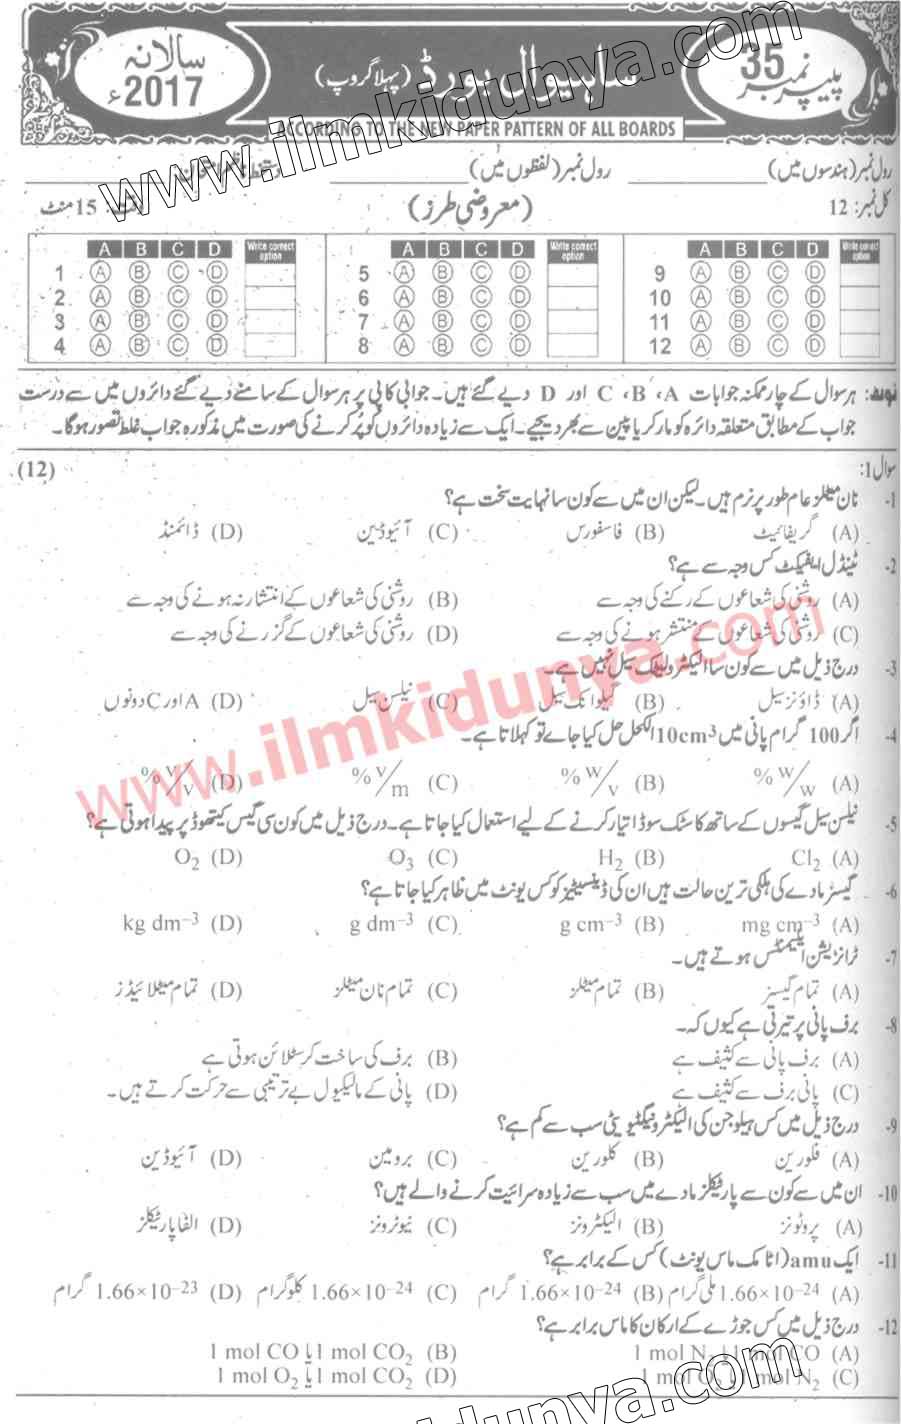 سالانہ 2017ء
ساہیوال بورڈ (پہلا گروپ)
پیپر نمبر 35
ACCORDING TO THE NEW PAPER PATTERN OF ALL BOARDS
www.ilmkidunya.com
رول نمبر (ہندسوں میں) رول نمبر (لفظوں میں)
کل نمبر: 12 (معروضی طرز) وقت: 15 منٹ
A B C D Write correct option A B C D Write correct option A B C D Write correct option
1 A B C D 5 A B C D 9 A B C D
2 A B C D 6 A B C D 10 A B C D
3 A B C D 7 A B C D 11 A B C D
4 A B C D 8 A B C D 12 A B C D
نوٹ: ہر سوال کے چار ممکنہ جوابات A، B، C اور D دیے گئے ہیں۔ جوابی کاپی پر ہر سوال کے سامنے دیے گئے دائروں میں سے درست
جواب کے مطابق متعلقہ دائرہ کو مارکر یا پین سے بھر دیجیے۔ ایک سے زیادہ دائروں کو پُر کرنے کی صورت میں مذکورہ جواب غلط تصور ہوگا۔
سوال 1: (12)
1- نان میٹلز عام طور پر نرم ہیں۔ لیکن ان میں سے کون سا نہایت سخت ہے؟
(A) گریفائیٹ (B) فاسفورس (C) آئیوڈین (D) ڈائمنڈ
2- ٹنڈل ایفیکٹ کس وجہ سے ہے؟
(A) روشنی کی شعاعوں کے رکنے کی وجہ سے (B) روشنی کی شعاعوں کے انتشار نہ ہونے کی وجہ سے
(C) روشنی کی شعاعوں کے منتشر ہونے کی وجہ سے (D) روشنی کی شعاعوں کے گزرنے کی وجہ سے
3- درج ذیل میں سے کون سا الیکٹرولیٹک سیل نہیں ہے۔
(A) ڈاؤنز سیل (B) گیلوانک سیل (C) نیلسن سیل (D) A اور C دونوں
4- اگر 100 گرام پانی میں 10cm³ الکحل حل کیا جائے تو کہلاتا ہے۔
(A) % w/w (B) % w/v (C) % v/m (D) % v/v
5- نیلسن سیل گیسوں کے ساتھ کاسٹک سوڈا تیار کرنے کے لیے استعمال کیا جاتا ہے۔ درج ذیل میں کون سی گیس کیتھوڈ پر پیدا ہوتی ہے؟
(A) Cl₂ (B) H₂ (C) O₃ (D) O₂
6- گیسز مادے کی ہلکی ترین حالت ہیں ان کی ڈینسیٹیز کو کس یونٹ میں ظاہر کیا جاتا ہے؟
(A) mg cm⁻³ (B) g cm⁻³ (C) g dm⁻³ (D) kg dm⁻³
7- ٹرانزیشن ایلیمنٹس ہوتے ہیں۔
(A) تمام گیسز (B) تمام میٹلز (C) تمام نان میٹلز (D) تمام میٹلائیڈز
8- برف پانی پر تیرتی ہے کیوں کہ۔
(A) برف پانی سے کثیف ہے (B) برف کی ساخت کرسٹلائن ہوتی ہے
(C) پانی برف سے کثیف ہے (D) پانی کے مالیکیول بے ترتیبی سے حرکت کرتے ہیں۔
9- درج ذیل میں کس ہیلوجن کی الیکٹرونیگٹیویٹی سب سے کم ہے؟
(A) فلورین (B) کلورین (C) برومین (D) آئیوڈین
10- ان میں سے کون سے پارٹیکلز مادے میں سب سے زیادہ سرائیت کرنے والے ہیں؟
(A) پروٹونز (B) الیکٹرونز (C) نیوٹرونز (D) الفا پارٹیکلز
11- ایک amu (اٹامک ماس یونٹ) کس کے برابر ہے؟
(A) 1.66×10⁻²⁴ ملی گرام (B) 1.66×10⁻²⁴ گرام (C) 1.66×10⁻²⁴ کلوگرام (D) 1.66×10⁻²³ گرام
12- درج ذیل میں کس جوڑے کے ارکان کا ماس برابر ہے؟
(A) 1 mol CO یا 1 mol N₂ (B) 1 mol CO₂ یا 1 mol CO
(C) 1 mol N₂ یا 1 mol O₂ (D) 1 mol CO₂ یا 1 mol O₂
www.ilmkidunya.com